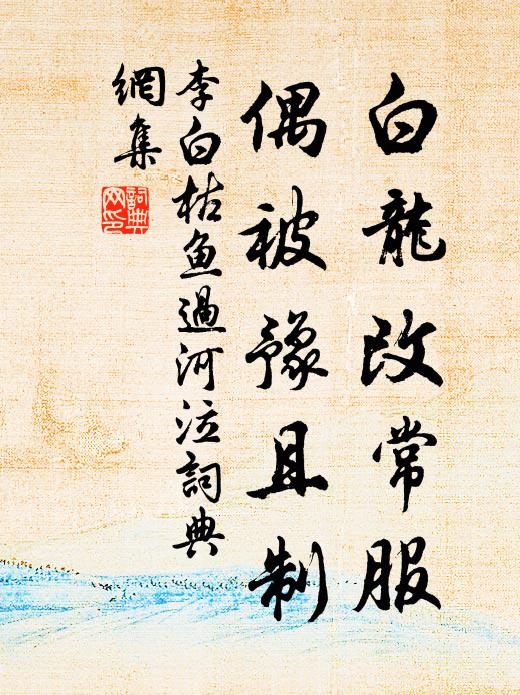 白龍改常服
偶被豫且制
李白枯魚過河泣詞典
網集
詞典
網印